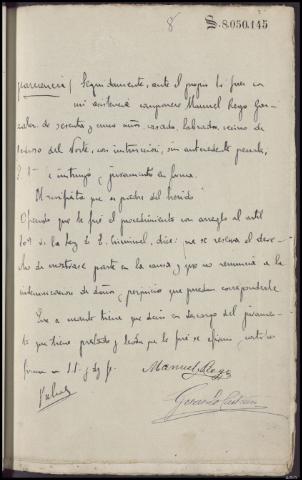 8
S.8.050.145
parecencia / Seguidamente, ante el propio Sr Juez con
mi asistencia comparece Manuel Rego Gon
zalez de sesenta y cinco años, casado, labrador, vecino de
del Norte, con instruccion, sin antecedentes penales,
e instruyó y juramentó en forma.
Manifiesta que es padre del herido
Ofrecido que le fué el procedimiento con arreglo al artil
109 de la Ley de E. Criminal, dice: que se reserva el dere-
cho de mostrarse parte en la causa y que no renuncia a la
indemnizacion de daños y perjuicios que puedan corresponderle
Que es cuanto tiene que decir en descargo del juramen-
to que tiene prestado y leida que le fué se afirma, ratifica
firma con S.S. y doy fe.
Manuel Rego
Gerardo